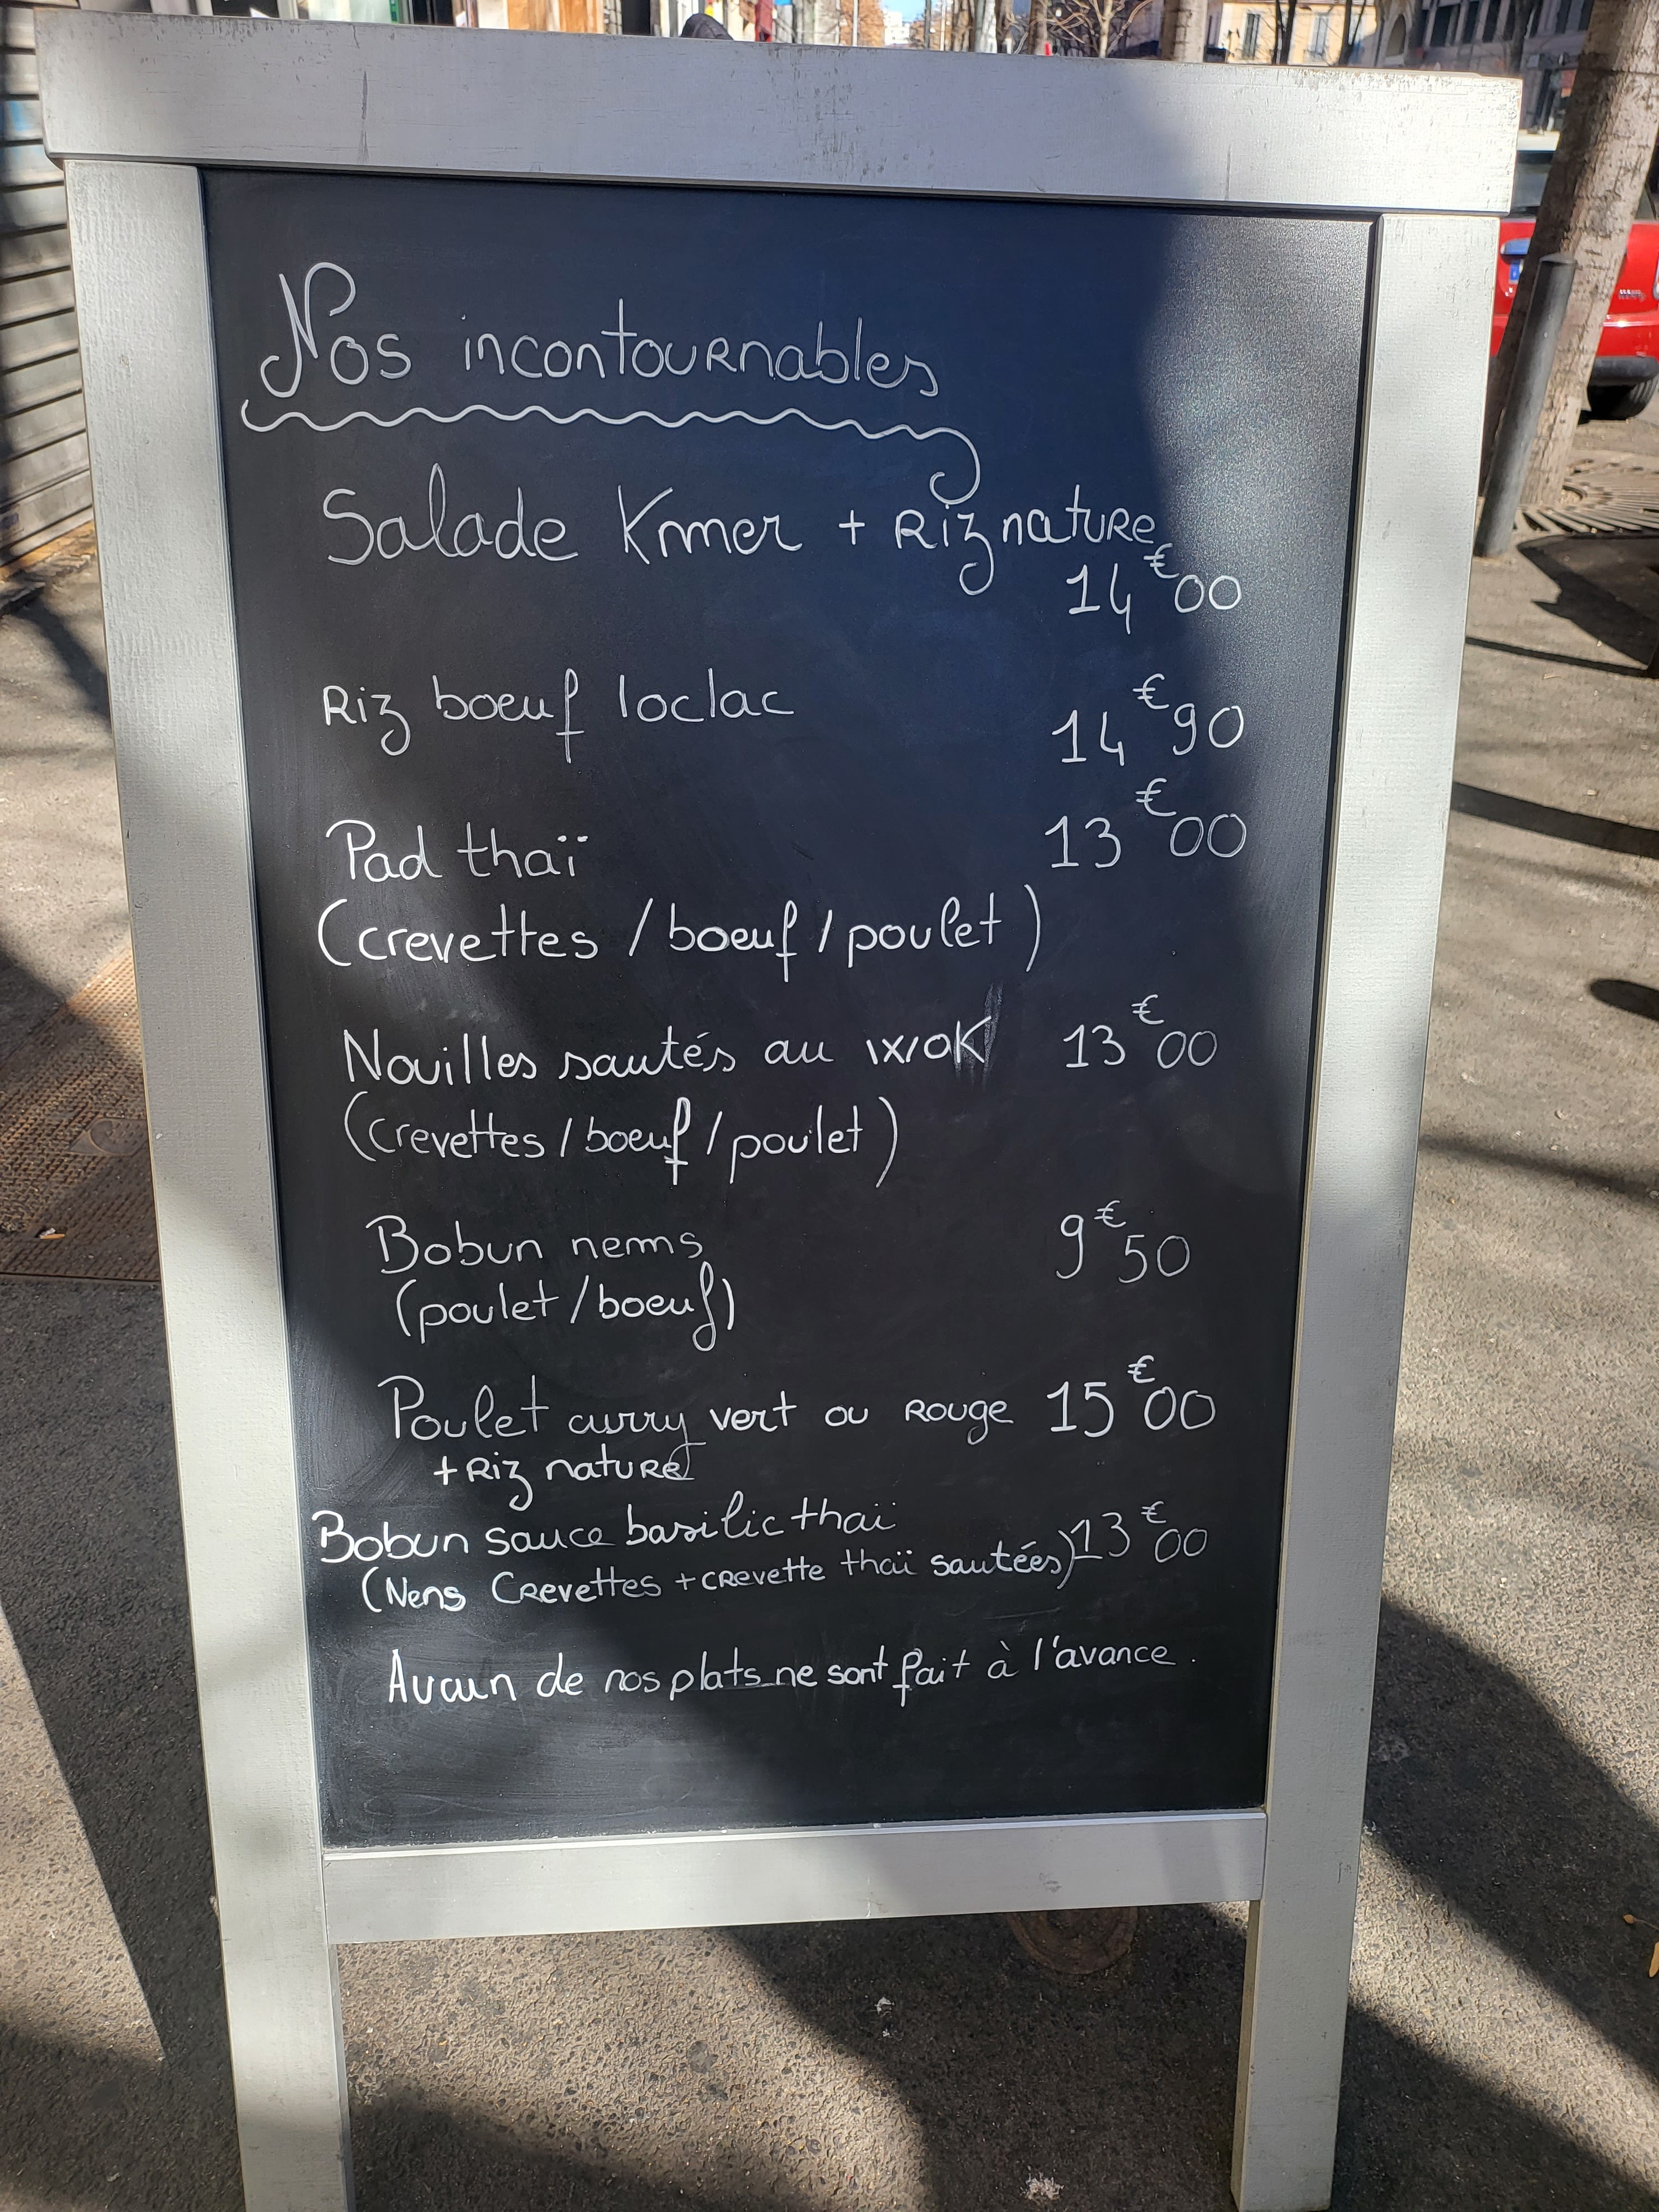 Nos incontournables
Salade Kmer + Riz nature
14€00
Riz boeuf loclac 14€90
Pad thaï 13€00
(crevettes / boeuf / poulet)
Nouilles sautés au wok 13€00
(crevettes / boeuf / poulet)
Bobun nems 9€50
(poulet / boeuf)
Poulet curry vert ou Rouge 15€00
+ Riz nature
Bobun sauce basilic thaï
(Nens Crevettes + crevette thaï sautées) 13€00
Aucun de nos plats ne sont fait à l'avance.